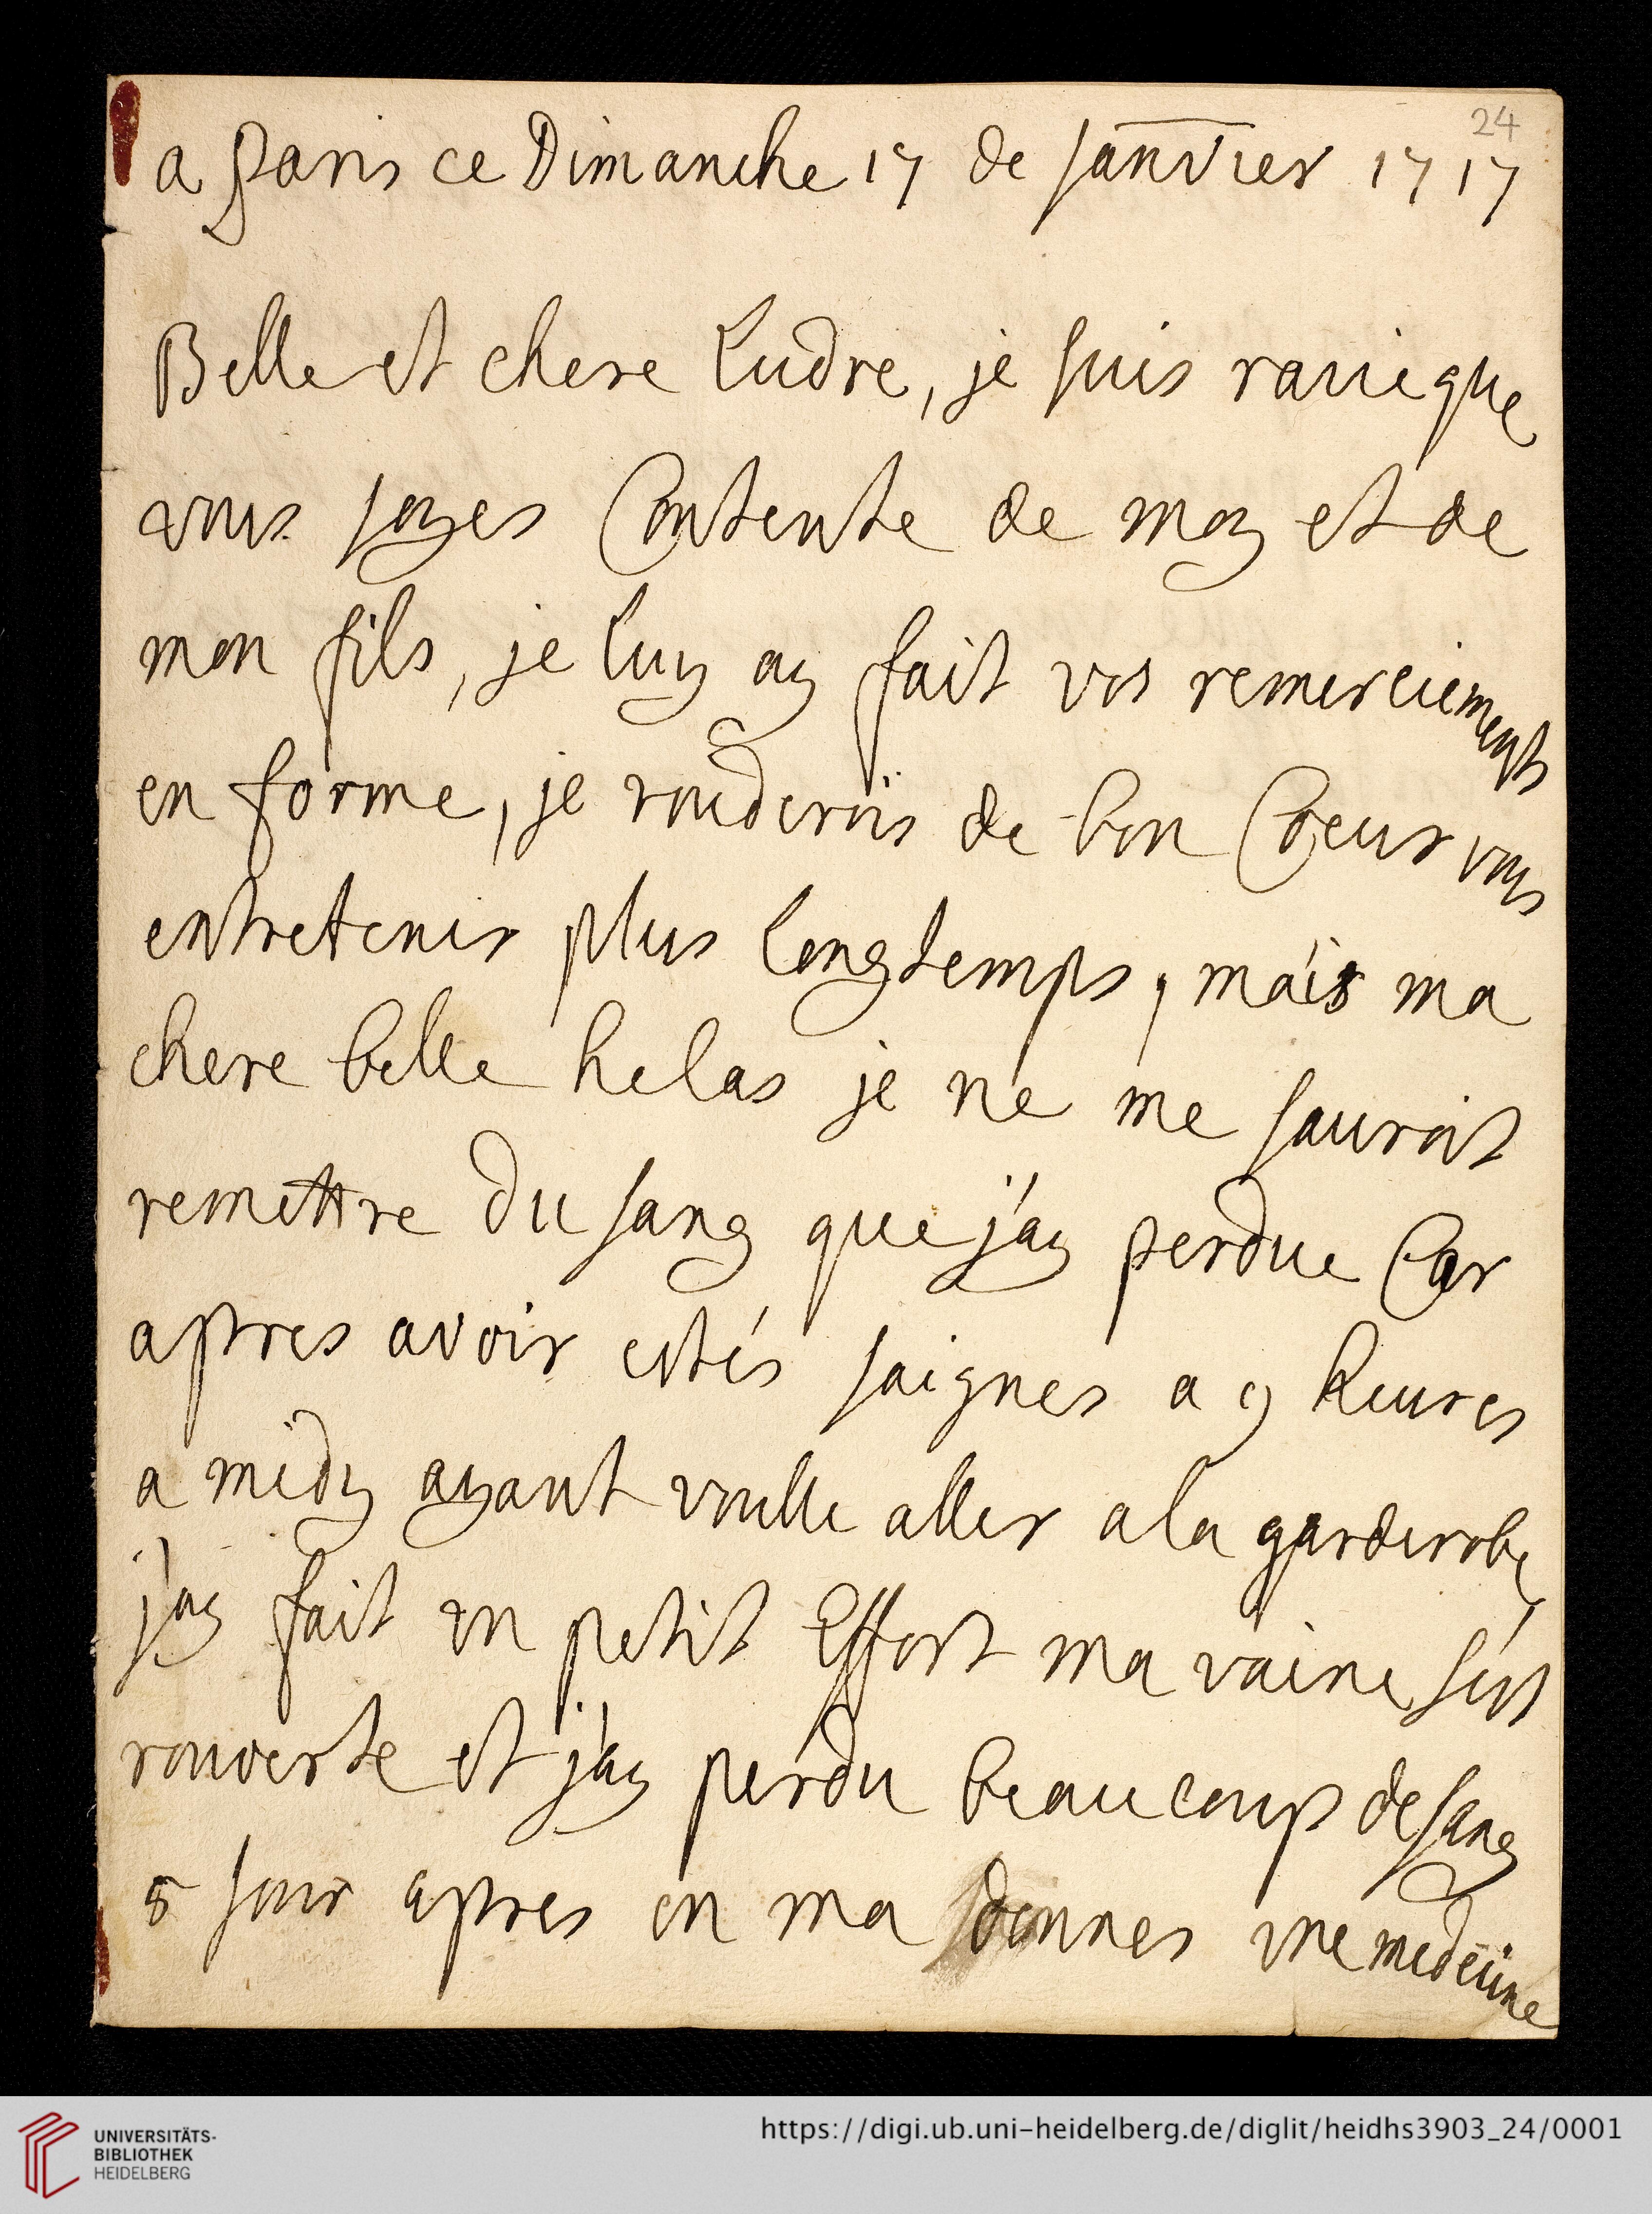 24
a Paris ce Dimanche 17 de Janvier 1717
Belle et chere Ludre, je suis ravie que
vous soyes Contente de moy et de
mon fils, je luy ay fait vos remerciements
en forme, je vouderois de bon Coeur vous
entretenir plus longtemps, mais ma
chere belle helas je ne me saurois
remettre du sang que j'ay perdue Car
apres avoir estés saignes a 9 heures
a midy ayant voulle aller a la garderobe
j'ay fait un petit Effort ma vaine s'est
rouverte et j'ay perdu beaucoup de sang
8 jour apres on ma donnes une medecine
UNIVERSITÄTS-
BIBLIOTHEK
HEIDELBERG
https://digi.ub.uni-heidelberg.de/diglit/heidhs3903_24/0001